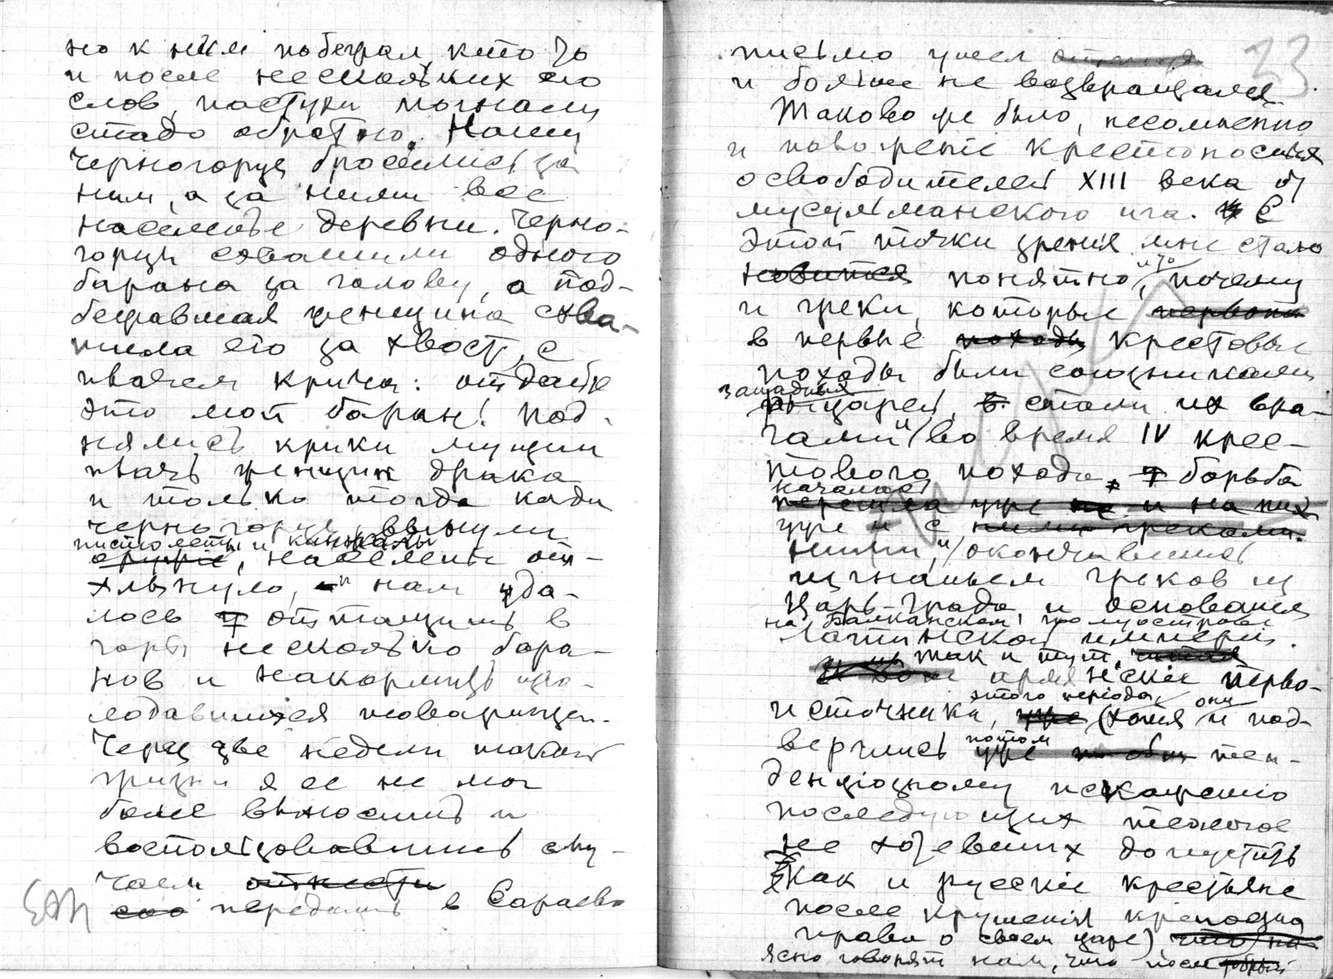 но к ним побежал кто то
и после нескольких его
слов пастухи погнали
стадо обратно. Наши
черногорцы бросились за
ним, а за ними все
население деревни. Черно-
горцы схватили одного
барана за голову, а под-
бежавшая женщина схва-
тила его за хвост, с
плачем крича: отдайте
это мой баран! Под-
нялись крики мущин
плачь женщин драка
и только тогда когда
черногорцы вынули
пистолеты и кинжалы
оружие, население от-
хлынуло, и нам уда-
лось оттащить в
горы несколько бара-
нов и накормить изго-
лодавшихся товарищей.
Через две недели такой
жизни я ее не мог
более выносить и
воспользовавшись слу-
чаем отнести
его передать в Сараево
письмо ушел
23
и больше не возвращался
Таково же было, несомненно
и поведение крестоносцев
освободителей XIII века от
мусульманского ига. С
этой точки зрения мне стало
новится понятно, почему
и то
и греки, которые
в первые походы крестовые
походы были союзниками
западных
рыцарей, стали их вра-
гами во время IV крес-
тового похода, борьба
началась
перешла уже не и на них
уже и с ними греками.
ними, окончившись
изгнанием греков из
Царь-града и основания
на Балканском полуострове
Латинской империи.
так и тут,
армянские перво-
источники, уже (хотя и под-
этого периода они
верглись потом тен-
денциозному искажению
последующих теологов
не хотевших допустить
Как и русские крестьяне
после крушения крепостно
права о своем царе)
ясно говорят нам, что после